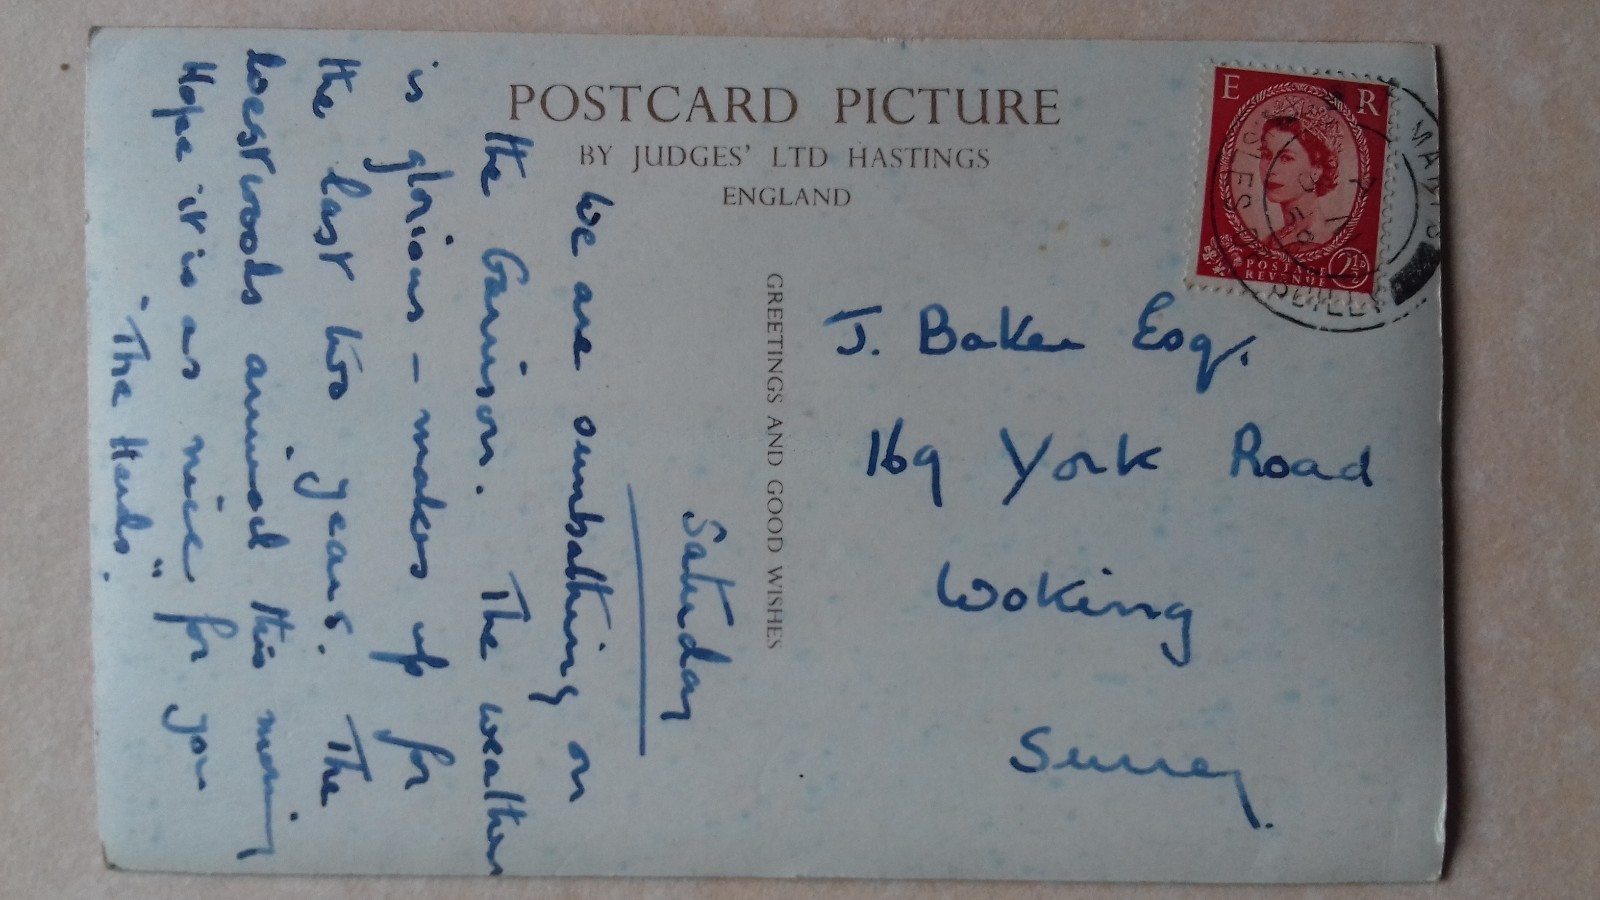 POSTCARD PICTURE
BY JUDGES' LTD HASTINGS
ENGLAND
GREETINGS AND GOOD WISHES
Saturday
We are sunbathing on
the Garrison. The weather
is glorious - makes up for
the last two years. The
Westwoods arrived this morning
Hope it is as nice for you
"The Herds".
J. Baker Esq.
169 York Road
Woking
Surrey.
E R
POSTAGE
REVENUE
2½D
ST MARY'S
ISLES OF SCILLY